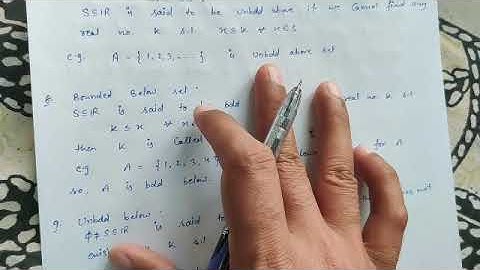 S⊆ℝ is said to be Unbdd above if we Cannot find any
real no. K s.t. x≤K ∀ x∈S
e.g. A = {1, 2, 3, ----} is Unbdd above set
8. Bounded Below set :-
S⊆ℝ is said to bdd real no. K s.t.
K ≤ x ∀ x
then K is Called for A
e.g A = {1, 2, 3, 4
so, A is bdd below.
9. Unbdd below :-
ϕ≠S⊆ℝ is said to
K s.t.